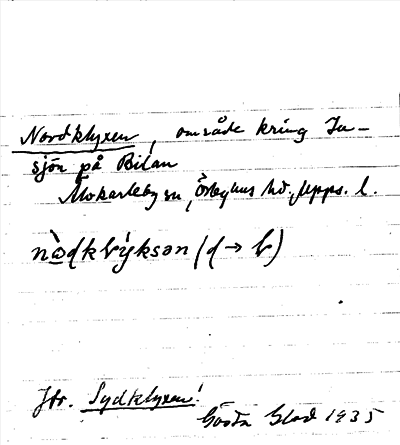 Nordklyxen, område kring In-
sjön på Billan
Älvkarleby sn, Örbyhus hd, Upps. l.
nòdklýksən (d → l)
Jfr. Sydklyxen!
Gösta Glad 1935